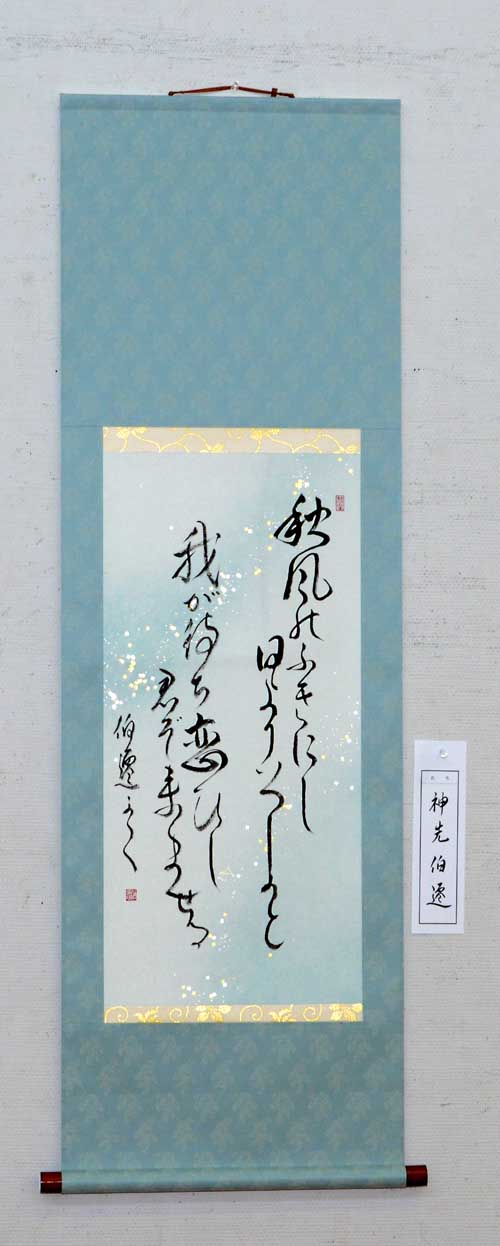 秋風のふきにし
日よりいつしかと
我が待ち恋ひし
君ぞ来ませる
伯遷かく
氏名
神先伯遷